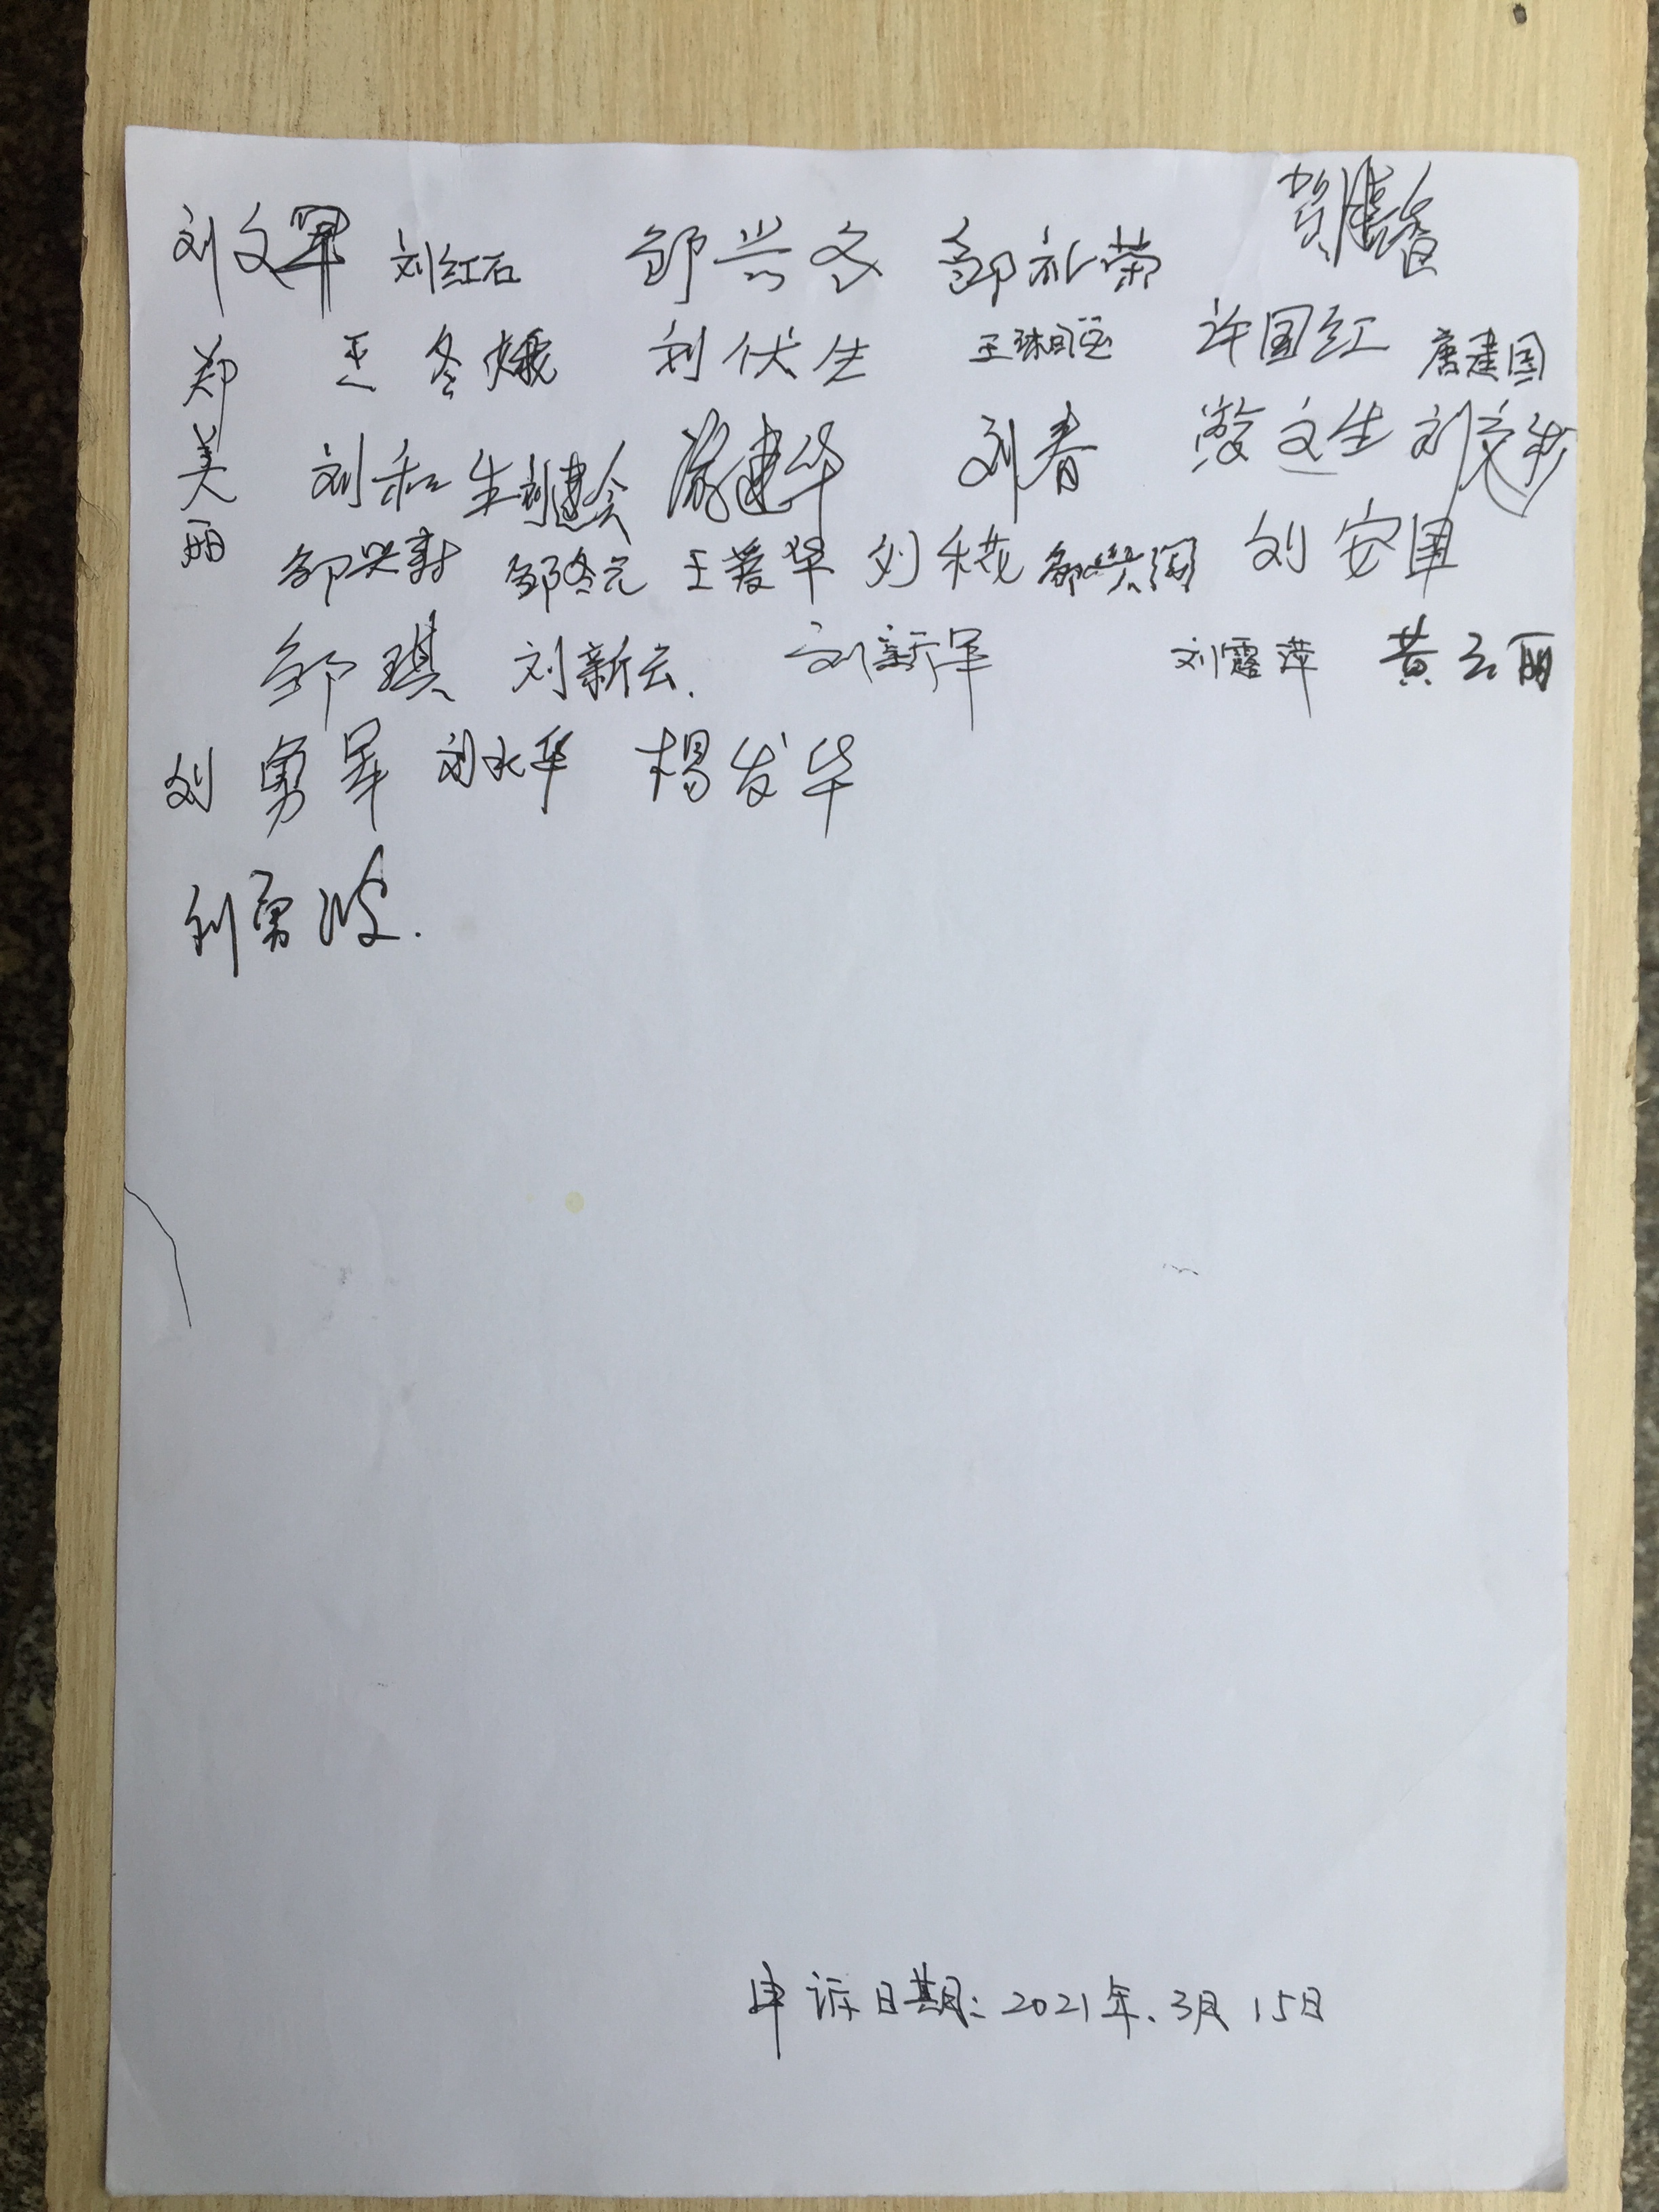 刘文军 刘红石 邹兴冬 邹礼荣 贺
郑美丽 王冬娥 刘伏生 王 许国红 唐建国
刘和生 刘建会 建华 刘春 文生 刘文
邹兴 邹冬元 王爱华 刘禾花 邹兴 刘安国
邹琪 刘新云. 刘新军 刘露萍 黄云丽
刘勇军 刘水华 杨发华
刘勇波.
申诉日期: 2021年.3月15日